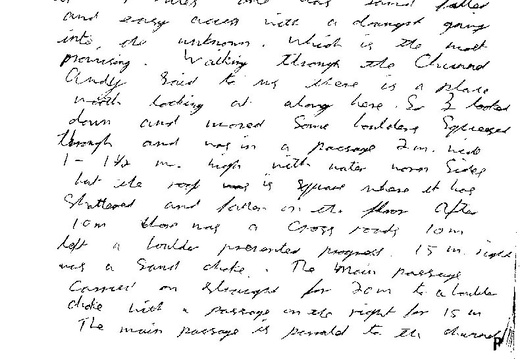 and easy access with a draught going
into the unknown. Which is the most
promising. Walking through the Channel
Andy said to us there is a place
worth looking at along here. So I looked
down and moved some boulders squeezed
through and was in a passage 2m. wide
1 - 1½ m. high with water worn sides
but the roof was is square where it has
shattered and fallen on the floor After
10m there was a cross roads 10m
left a boulder prevented progress. 15 m. right
was a sand choke. The main passage
carried on straight for 20m to a boulder
choke with a passage on the right for 15 m
The main passage is parallel to the channel